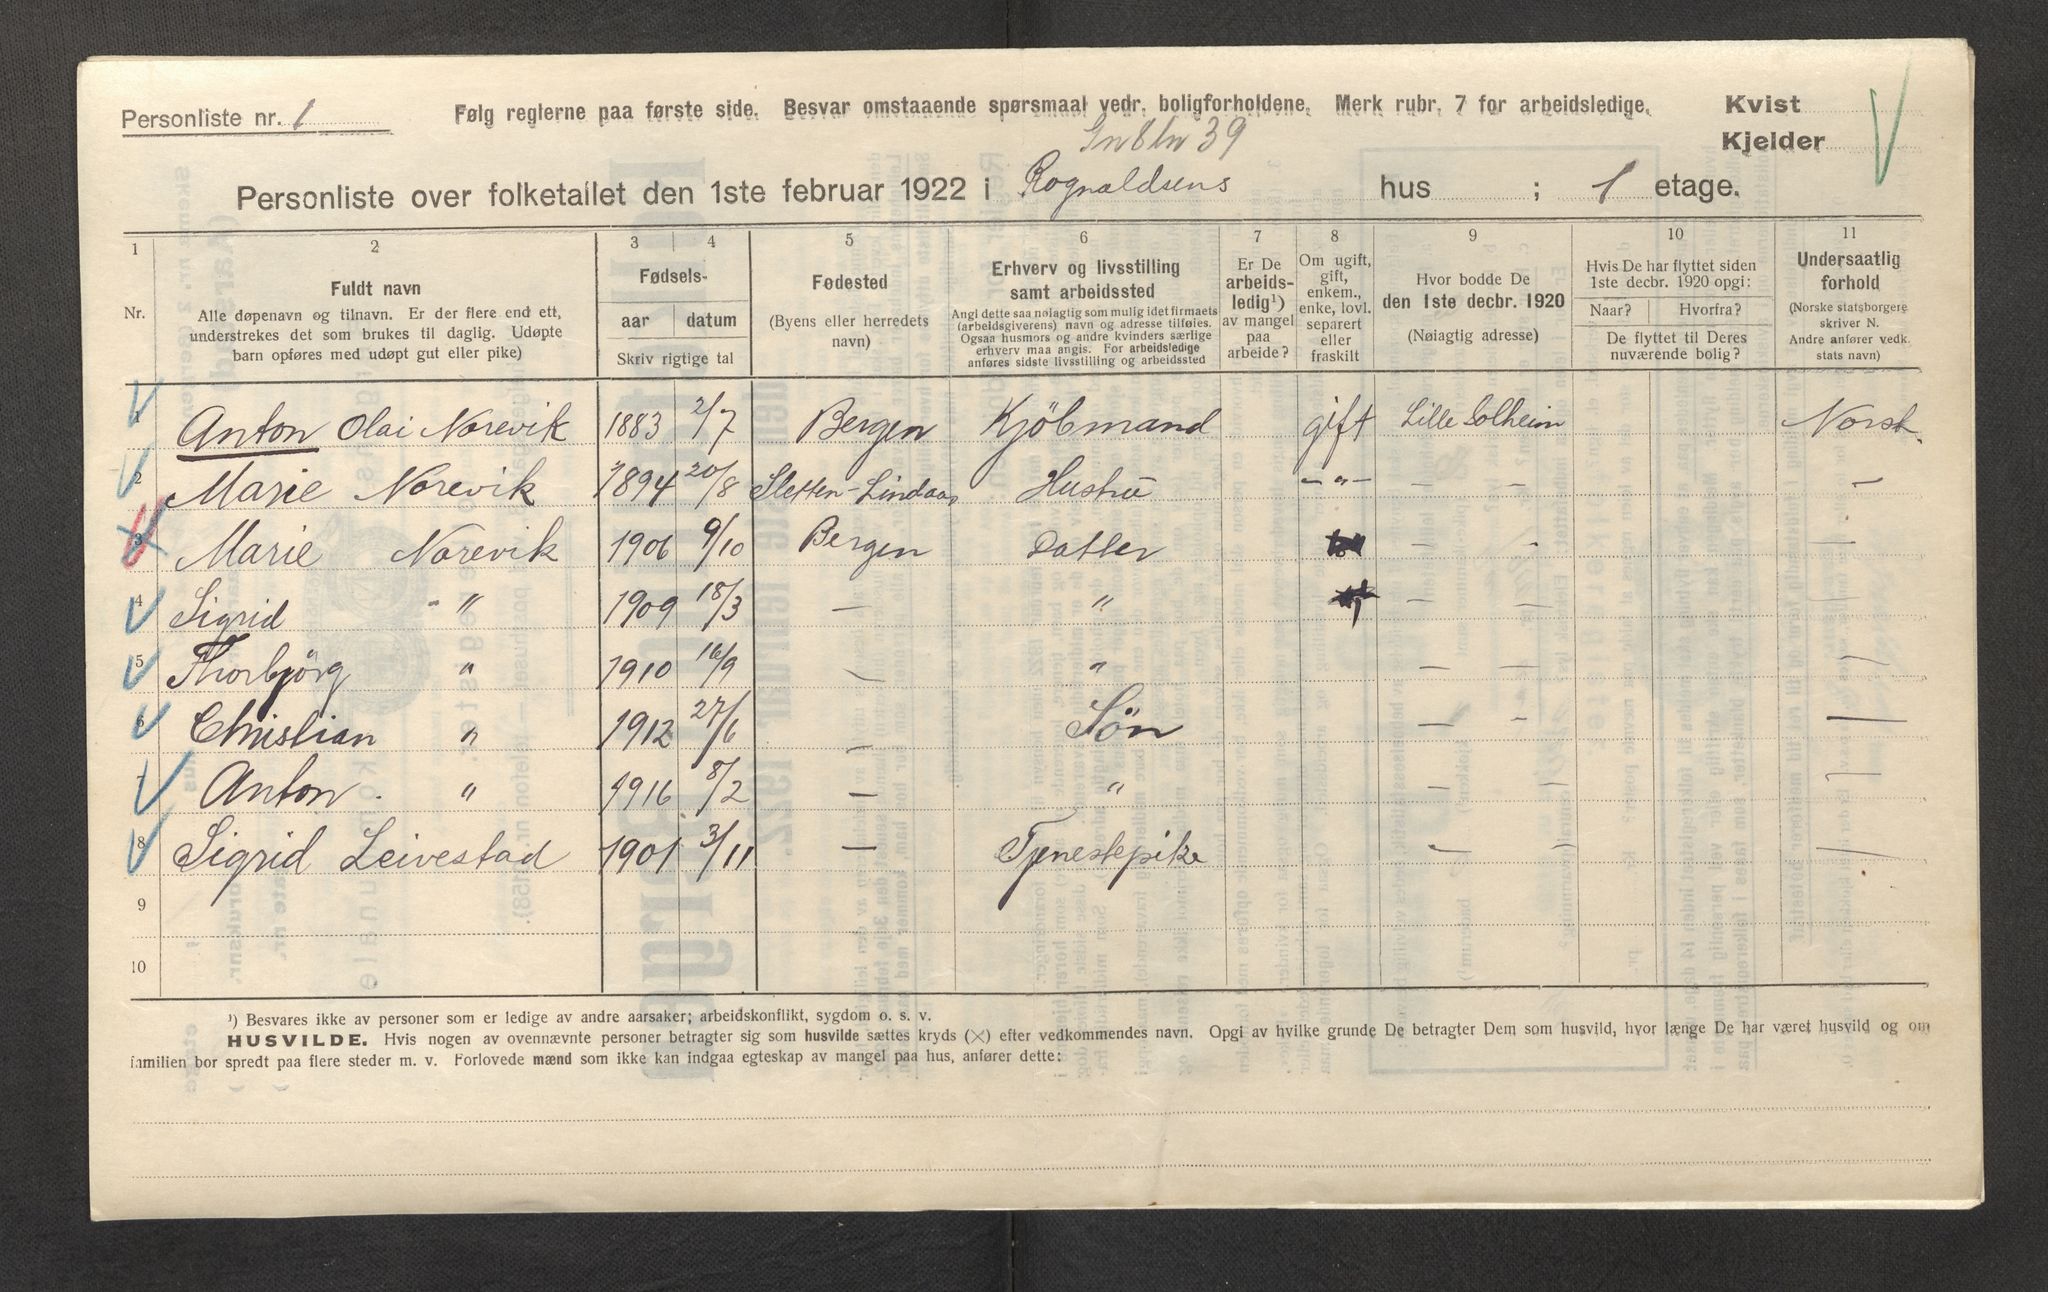 Personliste nr. 1 Følg reglerne paa første side. Besvar omstaaende spørsmaal vedr. boligforholdene. Merk rubr. 7 for arbeidsledige. Kvist
39
Kjelder
Personliste over folketallet den 1ste februar 1922 i Rognaldsens hus ; 1 etage.
1 2 3 4 5 6 7 8 9 10 11
Nr.
Fuldt navn
Alle døpenavn og tilnavn. Er der flere end ett,
understrekes det som brukes til daglig. Udøpte
barn opføres med udøpt gut eller pike)
Fødsels-
aar datum
Skriv rigtige tal
Fødested
(Byens eller herredets
navn)
Erhverv og livsstilling
samt arbeidssted
Angi dette saa nøiagtig som mulig idet firmaets
(arbeidsgiverens) navn og adresse tilføies.
Ogsaa husmors og andre kvinders særlige
erhverv maa angis. For arbeidsledige
anføres sidste livsstilling og arbeidssted
Er De
arbeids-
ledig¹)
av mangel
paa
arbeide?
Om ugift,
gift,
enkem.,
enke, lovl.
separert
eller
fraskilt
Hvor bodde De
den 1ste decbr. 1920
(Nøiagtig adresse)
Hvis De har flyttet siden
1ste decbr. 1920 opgi:
Naar? Hvorfra?
De flyttet til Deres
nuværende bolig?
Undersaatlig
forhold
(Norske statsborgere
skriver N.
Andre anfører vedk.
stats navn)
1 Anton Olai Norevik 1883 2/7 Bergen Kjöbmand gift Lille Solheim Norsk.
2 Marie Norevik 1894 20/8 Sletten-Lindaas Hustru -"- - - -
3 Marie Norevik 1906 9/10 Bergen Datter - - -
4 Sigrid " 1909 18/3 - " - - -
5 Thorbjörg " 1910 16/9 - " - - -
6 Christian " 1912 27/6 - Sön - - -
7 Anton. " 1916 8/2 - " - - -
8 Sigrid Leivestad 1901 3/11 - Tjenestepike - - -
9
10
¹) Besvares ikke av personer som er ledige av andre aarsaker; arbeidskonflikt, sygdom o. s. v.
HUSVILDE. Hvis nogen av ovennævnte personer betragter sig som husvilde sættes kryds (×) efter vedkommendes navn. Opgi av hvilke grunde De betragter Dem som husvild, hvor længe De har været husvild og om
familien bor spredt paa flere steder m. v. Forlovede mænd som ikke kan indgaa egteskap av mangel paa hus, anfører dette: